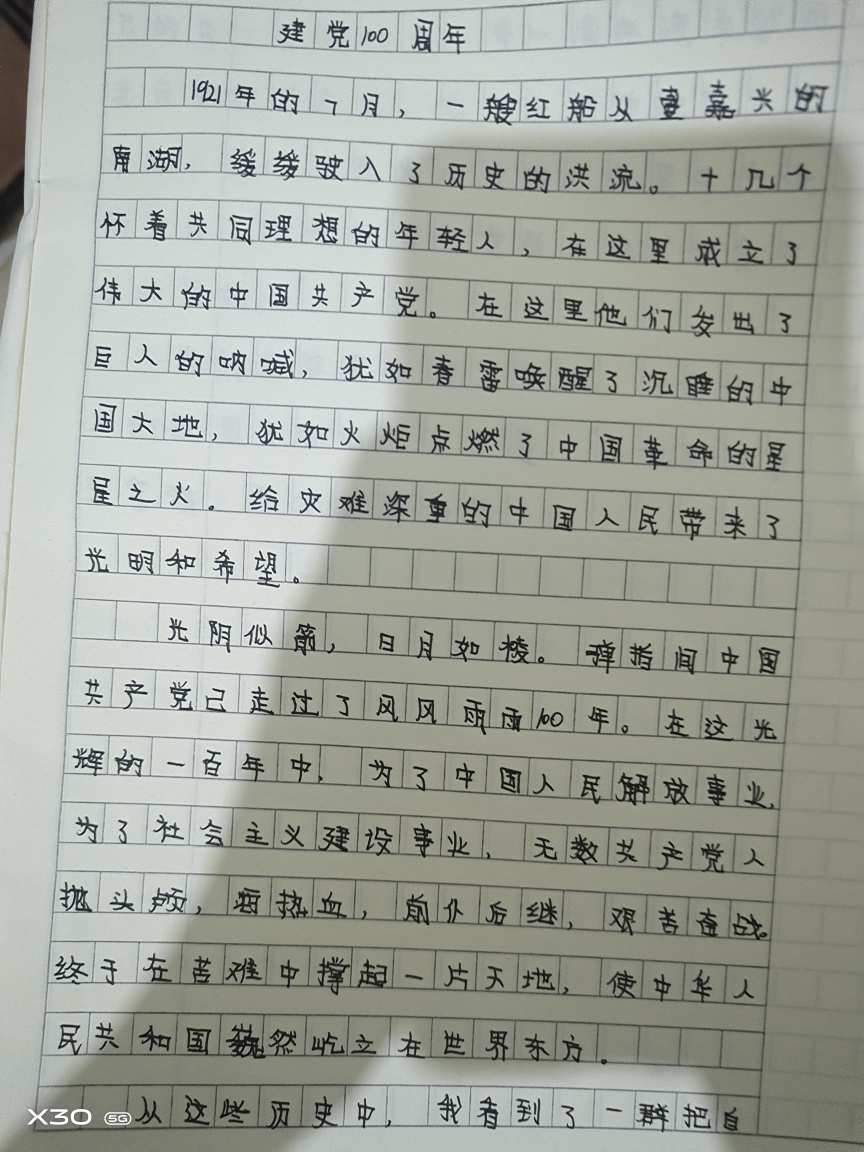 建党100周年
1921年的7月，一艘红船从嘉兴的
南湖，缓缓驶入了历史的洪流。十几个
怀着共同理想的年轻人，在这里成立了
伟大的中国共产党。在这里他们发出了
巨人的呐喊，犹如春雷唤醒了沉睡的中
国大地，犹如火炬点燃了中国革命的星
星之火。给灾难深重的中国人民带来了
光明和希望。
光阴似箭，日月如梭。弹指间中国
共产党已走过了风风雨雨100年。在这光
辉的一百年中，为了中国人民解放事业，
为了社会主义建设事业，无数共产党人
抛头颅，洒热血，前仆后继，艰苦奋战。
终于在苦难中撑起一片天地，使中华人
民共和国巍然屹立在世界东方。
从这些历史中，我看到了一群把自
X30 5G